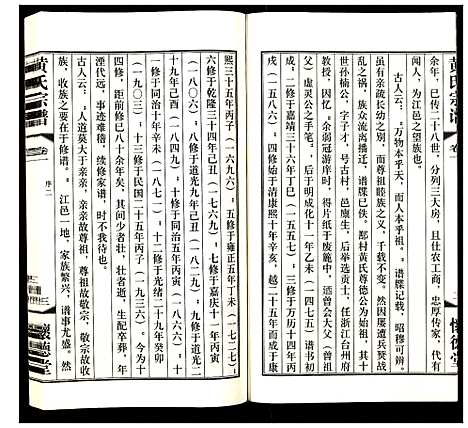 黄氏宗谱
卷一
怀德堂
余年，已传二十八世，分列三大房，且仕农工商，忠厚传家，代有
闻人，为江邑之望族也。
古人云：“万物本乎天，而人本乎祖。”谱牒记载，昭穆可辨。
虽有亲疏长幼之分，而报本尊祖睦族之义，千载不变。然因屡遭兵燹战
乱之祸，族众流离播迁，谱牒已佚。鄅村黄氏尊德公为始祖，其
世孙楠公，字子才，号古村，邑廪生，后举选贡士，任浙江台州府
教授，因忆“余弱冠游庠时，得片纸于废簏中，乃曾会大父（曾祖
父）虚灵公之手笔。”后于明成化十一年乙未（一四七五）谱书初
成，二修于嘉靖三十六年丁巳（一五五七），三修于万历十四年丙
戌（一五八六），四修始于清康熙十年辛亥，越二十五年而成于康
熙三十五年丙子（一六九六）。五修于雍正五年丁未（一七二七），
六修于乾隆三十四年己丑（一七六九），七修于嘉庆十一年丙寅
（一八〇六），八修于道光九年己丑（一八二九），九修于道光二
十九年己酉（一八四九），十修于同治五年丙寅（一八六六），十
一修于同治十年辛未（一八七一），十二修于光绪二十九年癸卯
（一九〇三），十三修于民国二十五年丙子（一九三六）。今为十
四修，距前修已八十余年矣，其间少者壮，壮者逝，生配卒葬，年
湮代远，事迹难稽，续修家谱，时不我待也。
古人云：“人道莫大于亲亲，亲亲故尊祖，尊祖故敬宗，敬宗故收
族，收族之要在于修谱。”江邑一地，家族繁兴，谱事尤盛。然
黄氏宗谱
卷一
序二
怀德堂